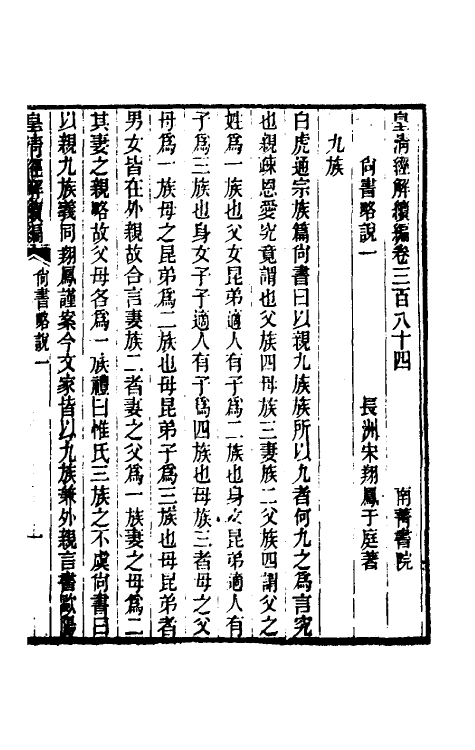 皇清經解續編卷三百八十四 南菁書院
尙書略說一 長洲宋翔鳳于庭著
九族
白虎通宗族篇尙書曰以親九族族所以九者何九之爲言究
也親疎恩愛究竟謂也父族四母族三妻族二父族四謂父之
姓爲一族也父女昆弟適人有子爲二族也身女昆弟適人有
子爲三族也身女子子適人有子爲四族也母族三者母之父
母爲一族母之昆弟爲二族也母昆弟子爲三族也母昆弟者
男女皆在外親故合言妻族二者妻之父爲一族妻之母爲二
其妻之親略故父母各爲一族禮曰惟氏三族之不虞尙書曰
以親九族義同翔鳳謹案今文家皆以九族兼外親言書歐陽
皇清經解續編 尙書略說一 一